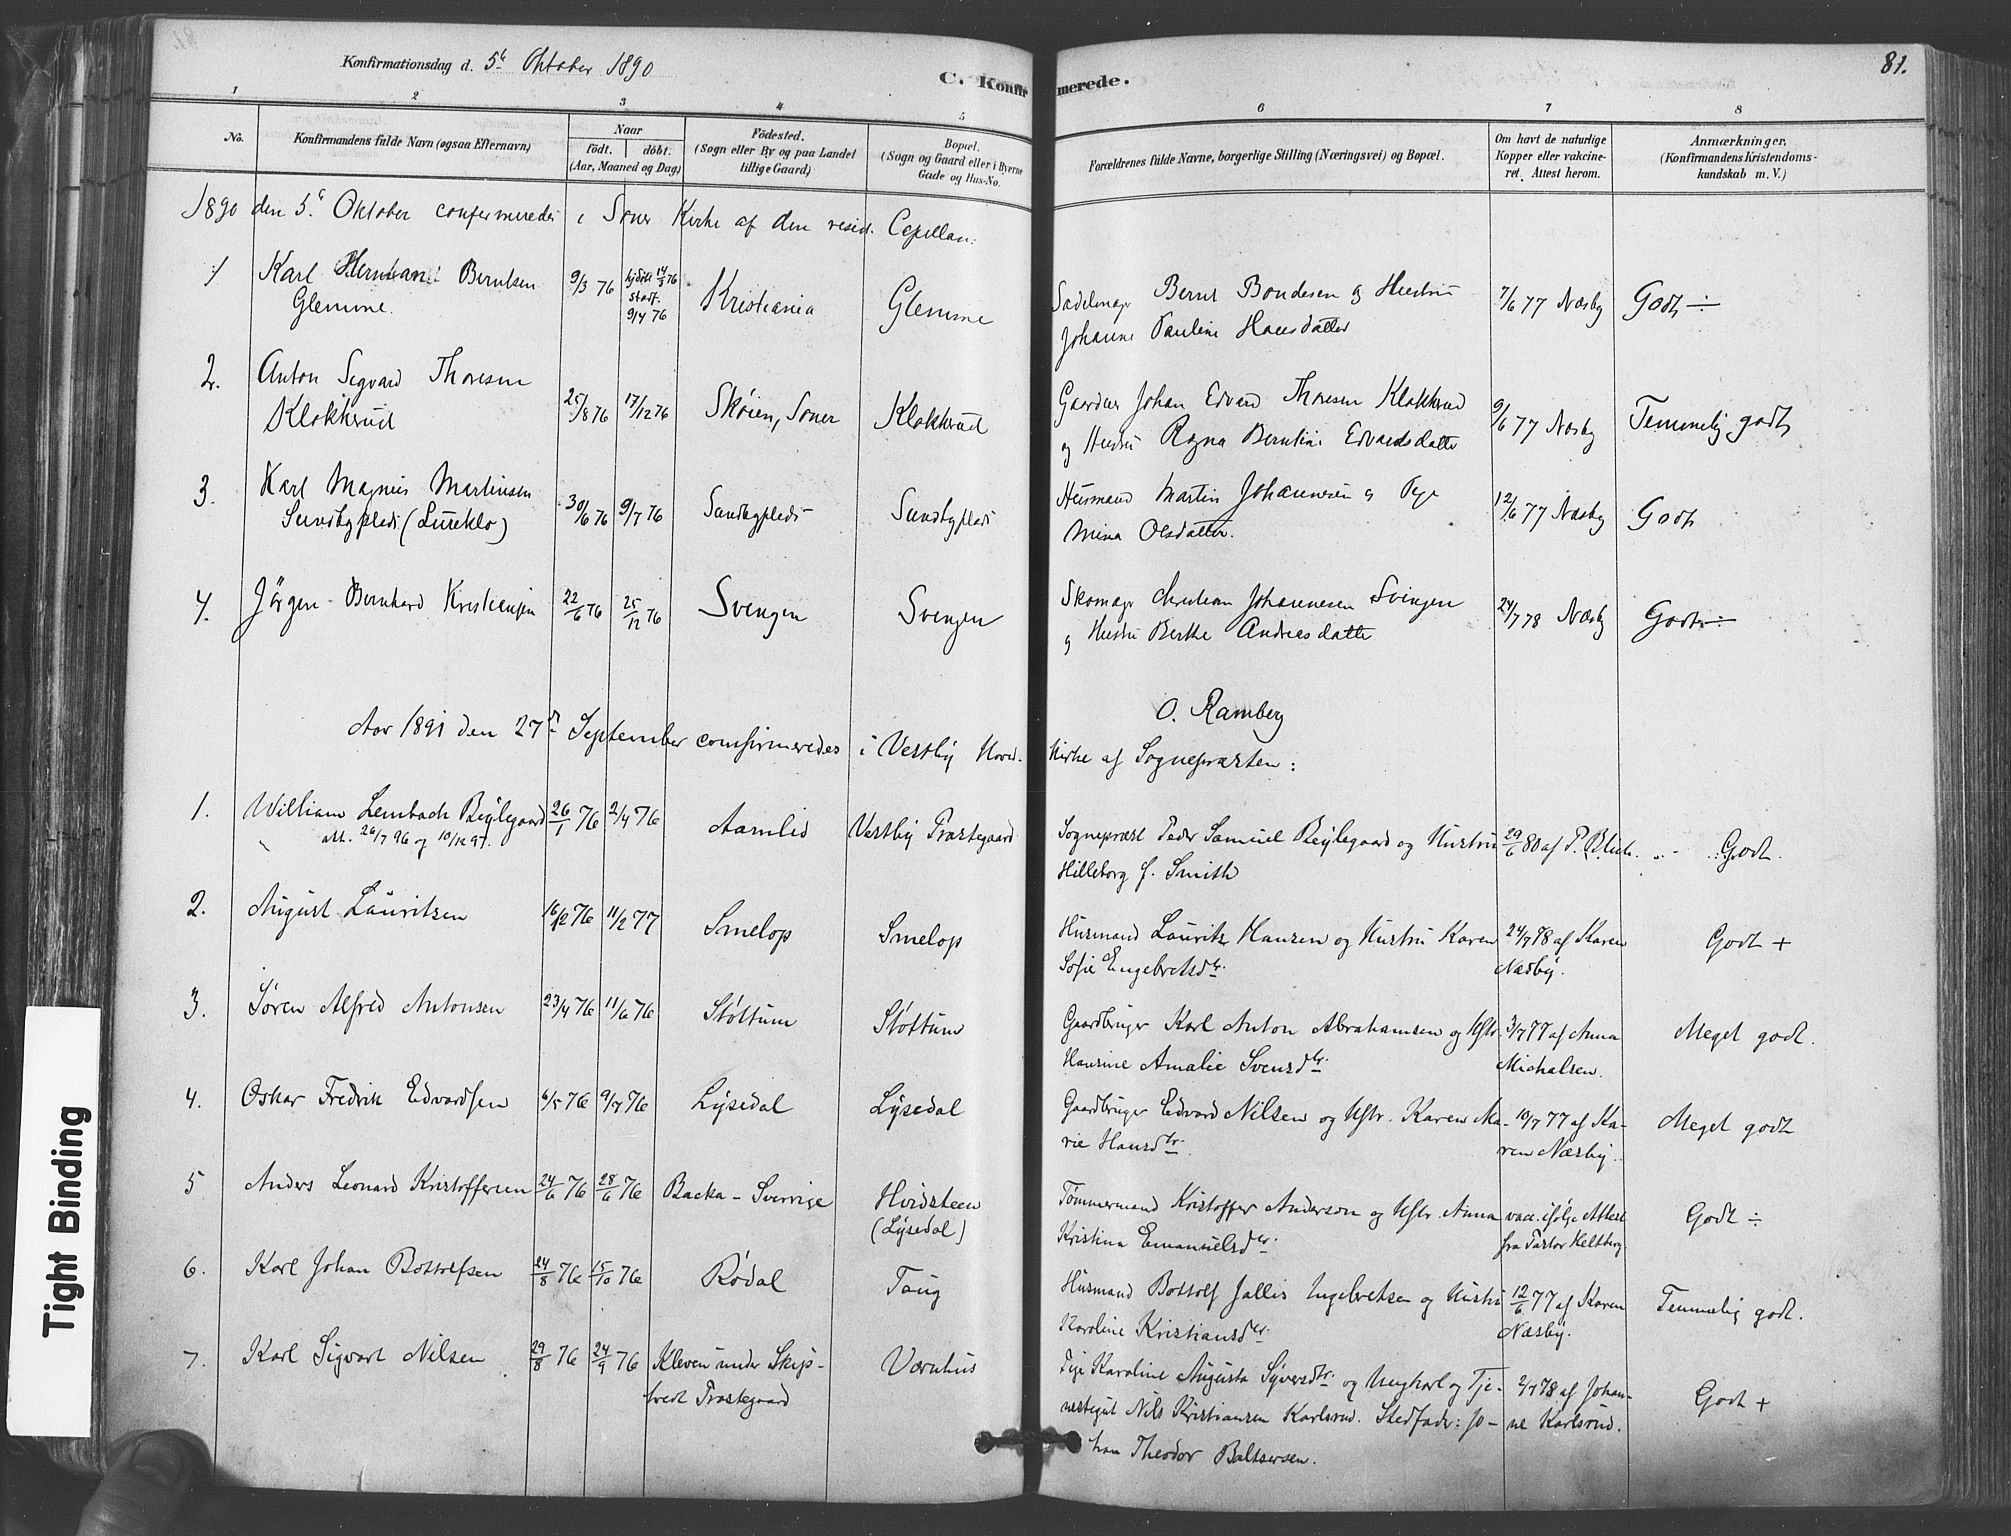 Konfirmationsdag d. 5t Oktober 1890
C. Konfirmerede.
81.
1 2 3 4 5 6 7 8
No.
Konfirmandens fulde Navn (ogsaa Efternavn)
Naar
født. døbt.
(Aar, Maaned og Dag)
Fødested.
(Sogn eller By og paa Landet
tillige Gaard)
Bopæl.
(Sogn og Gaard eller i Byerne
Gade og Hus-No.
Forældrenes fulde Navne, borgerlige Stilling (Næringsvei) og Bopæl.
Om havt de naturlige
Kopper eller vakcine-
ret. Attest herom.
Anmærkninger.
(Konfirmandens Kristendoms-
kundskab m. V.)
1890 den 5t Oktober confirmeredes i Soner Kirke af den resid. Capellan:
1 Karl Herman Berntsen
Glemme.
9/3 76 hjdøbt 14/3 76
stadf.
9/4 76
Kristiania Glemme
Sadelmager Bernt Bondesen og Hustru
Johanne Pauline Hansdatter
7/6 77 Næsby Godt ÷
2. Anton Segvard Thoresen
Klokkerud
25/8 76 17/12 76 Skøien, Soner Klokkerud
Gaardbr Johan Edvard Thoresen Klokkerud
og Hustru Ragna Berntine Edvardsdatter
9/6 77 Næsby Temmelig godt
3. Karl Magnus Martinsen
Sundbyplads (Lurekło)
30/6 76 9/7 76 Sundbyplads Sundbyplads
Husmand Martin Johannesen og Pige
Mina Olsdatter.
12/6 77 Næsby Godt
4. Jörgen Bernhard Kristiansen 22/6 76 25/12 76 Svengen Svengen
Skomager Christian Johannesen Svingen
og Hustru Berthe Andreasdatter
24/7 78 Næsby Godt ÷
O. Ramberg
Aar 1891 den 27de September confirmeredes i Vestby Hoved-
kirke af Sognepræsten:
1. William Lembach Bejlegaard 26/1 76 2/4 76 Aamlid Vestby Præstegaard
att. 26/7 96 og 10/12 97.
Sognepræst Peder Samuel Bejlegaard og Hustru
Hilleborg f. Smith
29/6 80 af P. Blich. Godt.
2. August Lauritsen 16/12 76 11/2 77 Smelop Smelop
Husmand Lauritz Hansen og Hustru Karen
Sofie Engebretsdtr.
24/7 78 af Karen
Næsby.
Godt +
3. Søren Alfred Antonsen 23/4 76 11/6 76 Støttum Støttum
Gaardbruger Karl Anton Abrahamsen og Hstr.
Hansine Amalie Svensdtr.
3/7 77 af Anna
Michalsen.
Meget godt.
4. Oskar Fredrik Edvardsen 6/5 76 9/7 76 Lysedal Lysedal
Gaardbruger Edvard Nilsen og Hstr. Karen Ma-
rie Hansdtr.
10/7 77 af Ka-
ren Næsby.
Meget godt
5 Anders Leonard Kristoffersen 24/6 76 28/6 76 Backa - Sverrige Hvidsteen
(Lysedal)
Tømmermand Kristoffer Anderson og Hstr. Anna
Kristina Emanuelsdtr.
vacc. ifølge Attest
fra Pastor Heltberg.
Godt ÷
6. Karl Johan Bottolfsen 24/8 76 15/10 76 Rødal Taug
Husmand Bottolf Jallis Ingebretsen og Hustru
Karoline Kristiansdtr.
12/6 77 af Karen
Næsby.
Temmelig godt.
7. Karl Sigvart Nilsen 29/8 76 24/9 76 Kleven under Skip-
tvedt Præstegaard
Værnhus
Pige Karoline Augusta Syversdtr. og Ungkarl og Tje-
nestegut Nils Kristiansen Karlsrud. Stedfader: Jo-
han Theodor Baltsersen.
2/7 78 af Johan-
ne Karlsrud.
Godt +
Tight Binding